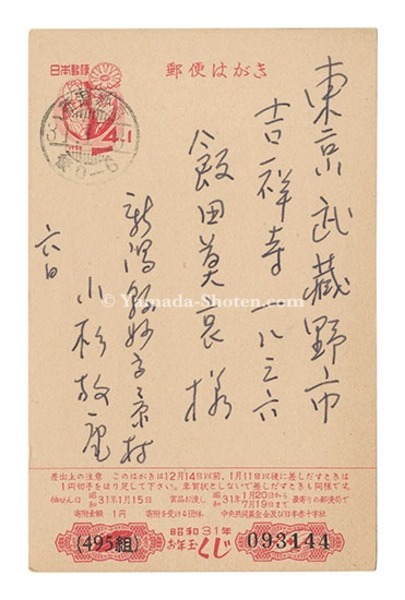 日本郵便
郵便はがき
4+1
東京都武蔵野市
吉祥寺一八三六
飯田莫哀様
新潟県妙高村
小杉放庵
六日
© Yamada-Shoten.com
差出上の注意 このはがきは12月14日以前、1月11日以後に差しだすときは
1円切手をはり足して下さい。年賀状としないで差しだすときも同様です。
抽せん日 昭和31年1月15日 賞品お渡し 昭和31年1月20日から7月19日まで 最寄りの郵便局で
寄附金額 1円 寄附を受ける団体 中央共同募金会及び日本赤十字社
昭和31年
(495組) お年玉くじ 093144